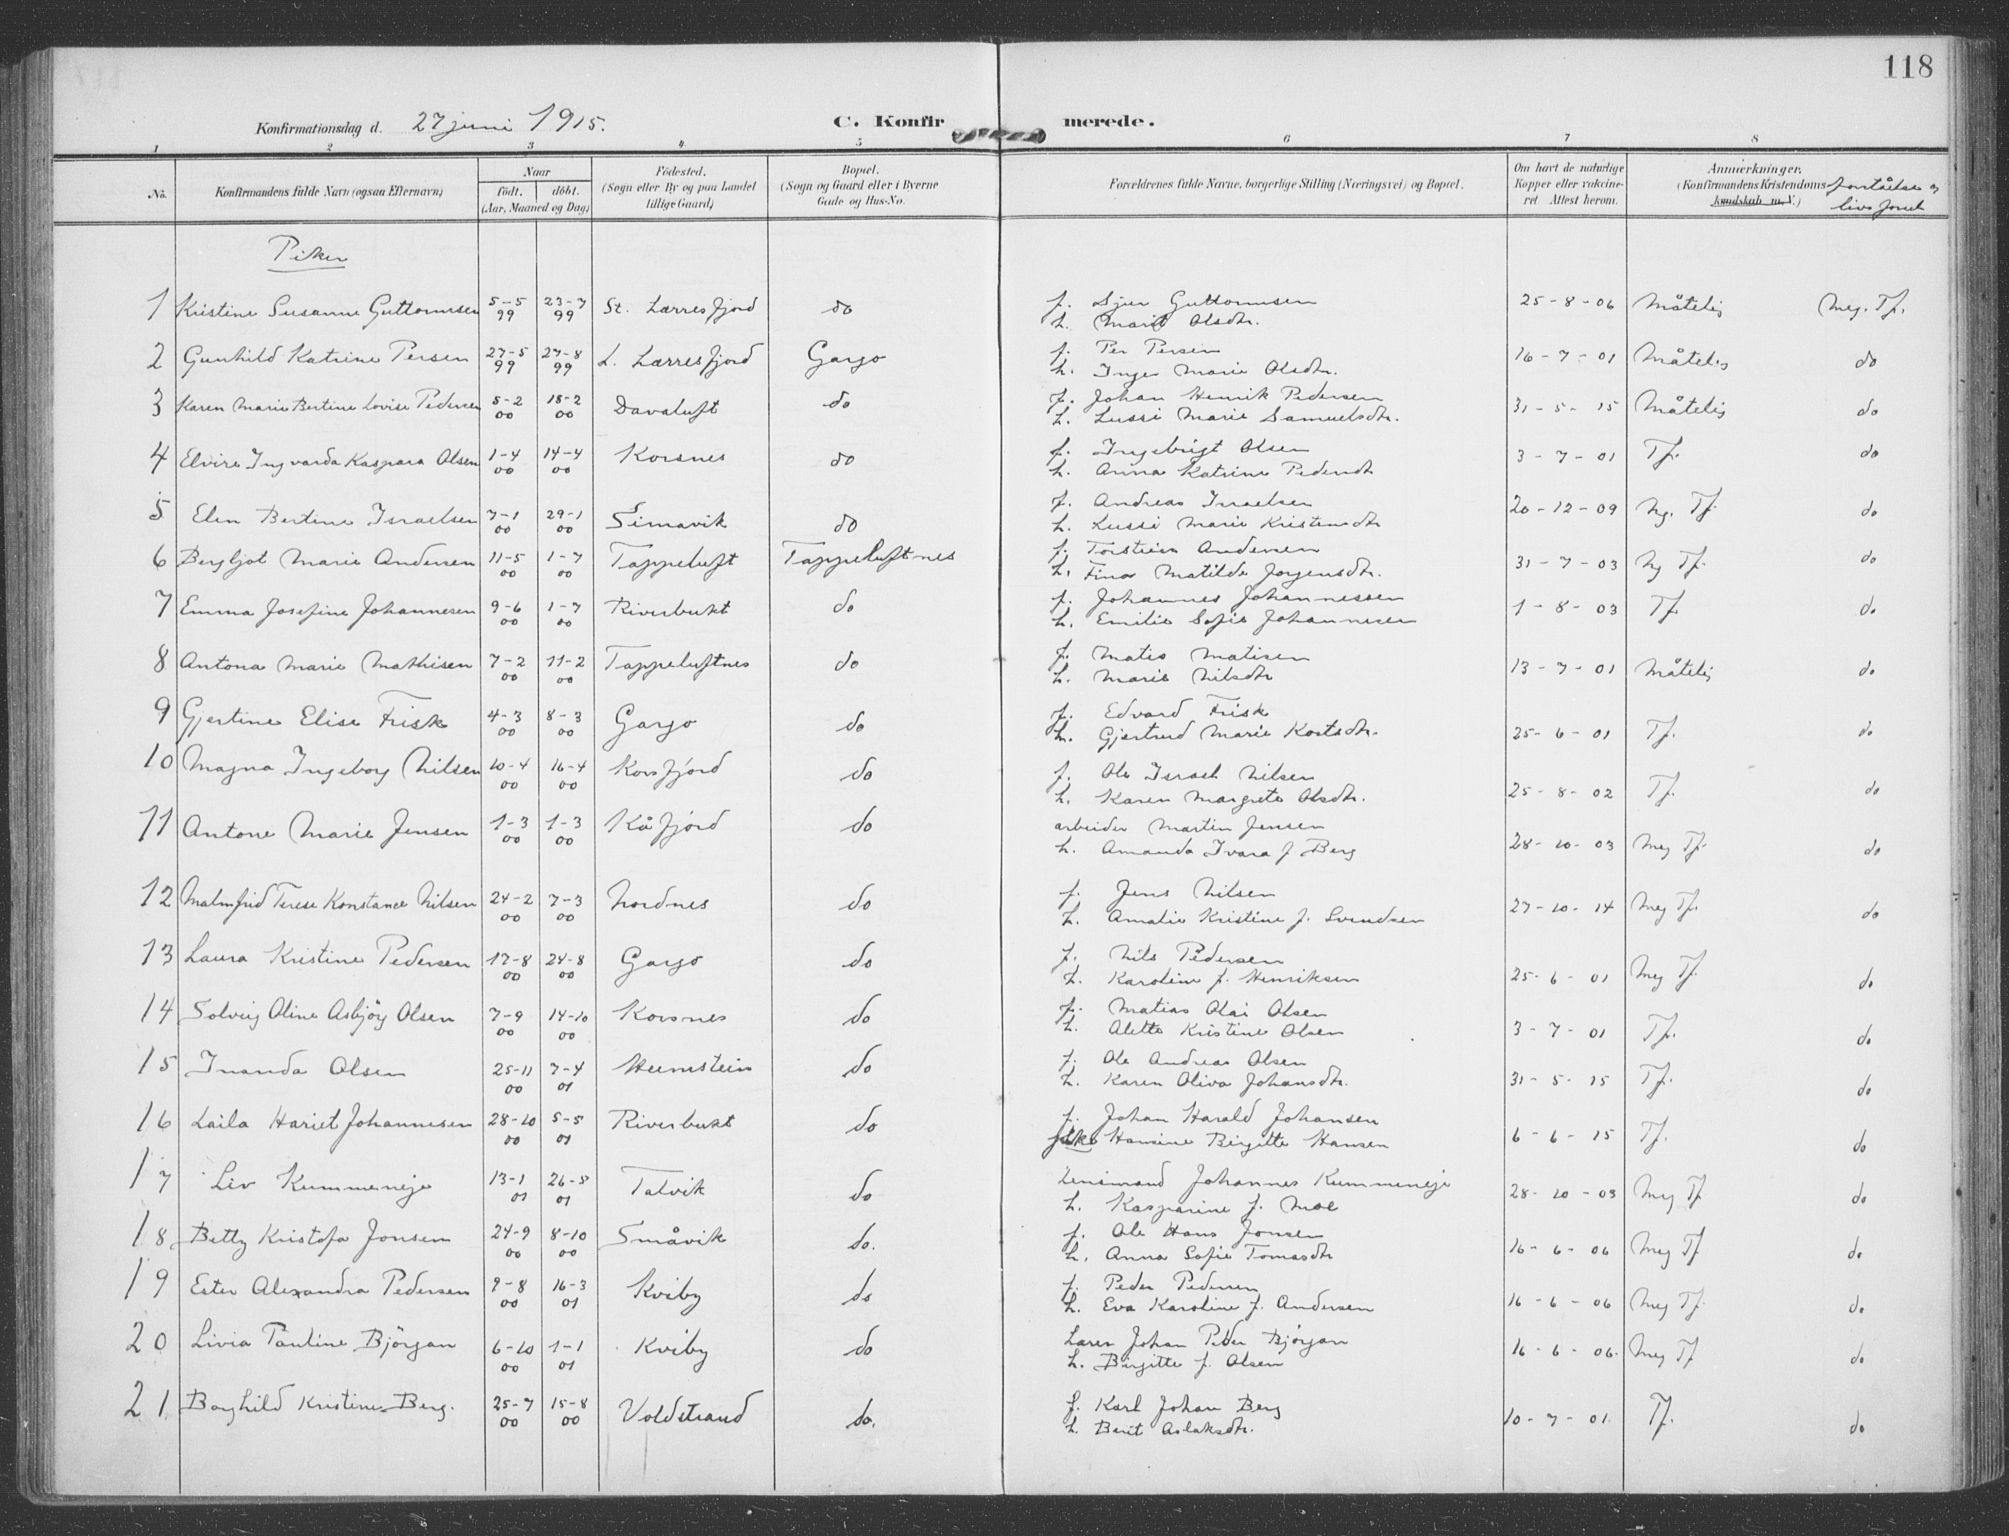 118
Konfirmationsdag d. 27 juni 1915. C. Konfirmerede.
1 2 3 4 5 6 7 8
No. Konfirmandens fulde Navn (ogsaa Efternavn) Naar födt. döbt. (Aar, Maaned og Dag) Födested. (Sogn eller By og paa Landet tillige Gaard) Bopæl. (Sogn og Gaard eller i Byerne Gade og Hus-No. Forældrenes fulde Navne, borgerlige Stilling (Næringsvei) og Bopæl. Om havt de naturlige Kopper eller vakcineret Attest herom. Anmærkninger. (Konfirmandens Kristendomskundskab m. V.) forståelse og
Piker
1 Kristine Susanne Guttormsen 5-5 99 23-7 99 St. Lærresfjord do f. Sjur Guttormsen 25-8-06 Måtelig Meg. Tf.
h. Marit Olsdtr.
2 Gunhild Katrine Persen 27-5 99 27-8 99 L. Lærresfjord Gargo f. Per Persen 16-7-01 Måtelig do
h. Inger Marie Olsdtr.
3 Karen Marie Bertine Lovise Pedersen 5-2 00 18-2 00 Davaluft do f. Johan Henrik Pedersen 31-5-15 Måtelig do
h. Lussi Marie Samuelsdtr.
4 Elvire Ingvarda Kaspara Olsen 1-4 00 14-4 00 Korsnes do f. Ingebrigt Olsen 3-7-01 Tf. do
h. Anna Katrine Pedersdtr
5 Elen Bertine Israelsen 7-1 00 29-1 00 Simavik do f. Andreas Israelsen 20-12-09 Ng. Tf. do
h. Lussi Marie Kristensdtr
6 Bergljot Marie Andersen 11-5 00 1-7 00 Tappeluft Tappeluftnes f. Torstein Andersen 31-7-03 Ng Tf. do
h. Fina Matilde Jorgensdtr.
7 Emma Josefine Johannesen 9-6 00 1-7 00 Riverbukt do f. Johannes Johannessen 1-8-03 Tf. do
h. Emilie Sofie Johannesen
8 Antona Marie Mathisen 7-2 00 11-2 00 Tappeluftnes do f. Matis Matisen 13-7-01 Måtelig do
h. Marie Nilsdtr
9 Gjertine Elise Frisk 4-3 00 8-3 00 Gargo do f. Edvard Frisk 25-6-01 Tf. do
h. Gjertrud Marie Kostsdtr.
10 Magna Ingeborg Nilsen 10-4 00 16-4 00 Korsfjord do f. Ole Israel Nilsen 25-8-02 Tf. do
h. Karen Margrete Olsdtr.
11 Antone Marie Jensen 1-3 00 1-3 00 Kåfjord do arbeider Martin Jensen 28-10-03 Meg Tf. do
h. Amanda Ivara f. Berg
12 Malmfrid Terese Konstance Nilsen 24-2 00 7-3 00 Nordnes do f. Jens Nilsen 27-10-14 Meg Tf. do
h. Amalie Kristine f. Svendsen
13 Laura Kristine Pedersen 17-8 00 24-8 00 Gargo do f. Nils Pedersen 25-6-01 Meg Tf. do
h. Karoline f. Henriksen
14 Solveig Oline Asbjörg Olsen 7-9 00 14-10 00 Korsnes do f. Matias Olai Olsen 3-7-01 Tf. do
h. Alette Kristine Olsen
15 Inanda Olsen 25-11 00 7-4 01 do f. Ole Andreas Olsen 31-5-15 Tf. do
h. Karen Oliva Johansdtr.
16 Laila Hariet Johannesen 28-10 00 5-5 01 Riverbukt do f. Johan Harald Johansen 6-6-15 Tf. do
pike Hansine Birgitte Hansen
17 Liv Kummeneje 13-1 01 26-5 01 Talvik do Lensmand Johannes Kummeneje 28-10-03 Meg Tf do
h. Kasparine f. Moe
18 Betty Kristofa Jonsen 24-9 00 8-10 00 Småvik do. f. Ole Hans Jonsen 16-6-06 Meg Tf do
h. Anna Sofie Tomasdtr
19 Ester Alexandra Pedersen 9-8 00 16-3 01 Kviby do f. Peder Pedersen 16-6-06 Meg Tf. do
h. Eva Karoline f. Andersen
20 Livia Pauline Björgan 6-10 00 1-1 01 Kviby do Lærer Johan Peder Bjørgan 16-6-06. Meg Tf do
h. Birgitte f. Olsen
21 Borghild Kristine Berg. 25-7 00 15-8 00 Voldstrand do. f. Karl Johan Berg 10-7-01. Tf. do
h. Berit Aslaksdtr.